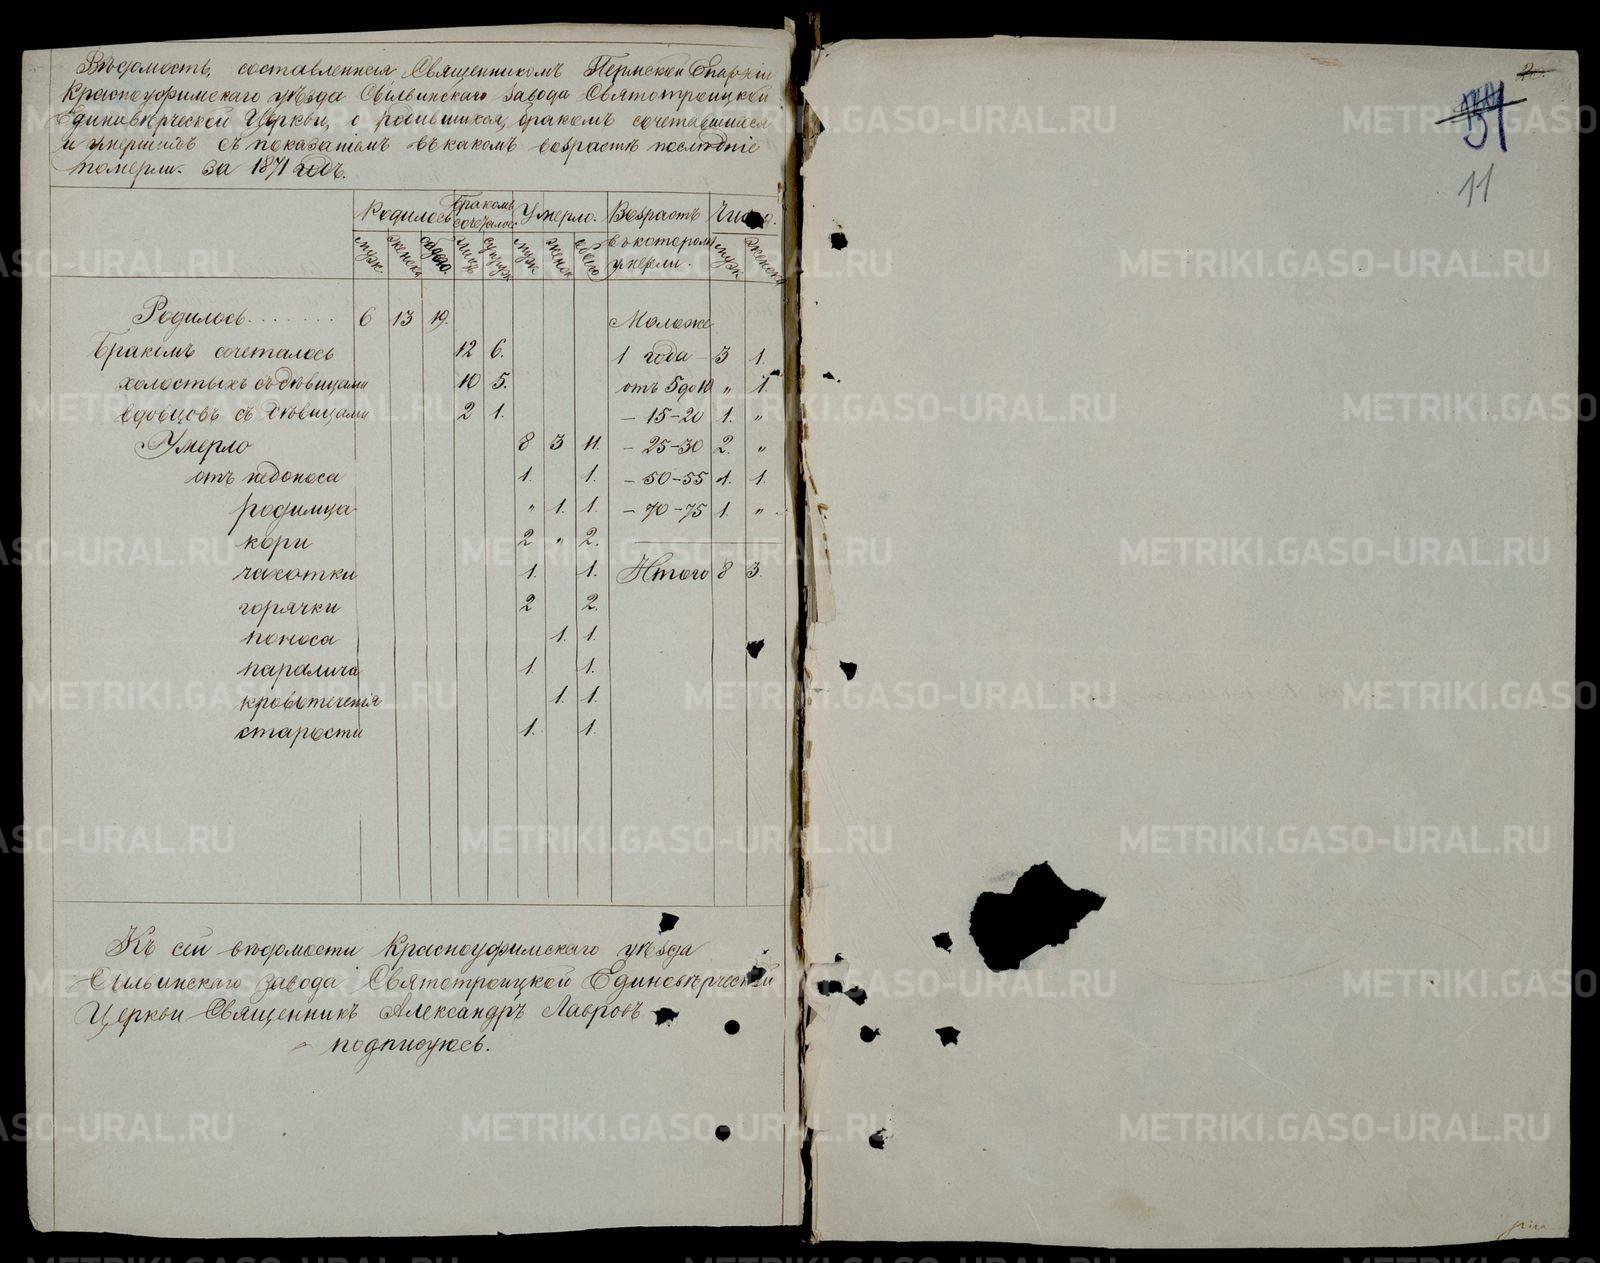 Вѣдомость, составленная Священникомъ Пермской Епархіи
Красноуфимскаго уѣзда Сильвинскаго завода Святотроицкой
Единовѣрческой Церкви, о родившихся, бракомъ сочетавшихся
и умершихъ съ показаніемъ въ какомъ возрастѣ послѣдніе
померли за 1871 годъ.
Родилось Бракомъ сочеталось Умерло. Возрастъ въ которомъ умерли. Число.
муж. женска обоего лицъ супруж. муж. женск. обоего муж. женска
Родилось....... 6 13 19. Моложе
Бракомъ сочеталось 12 6. 1 года - 3 1.
холостыхъ съ дѣвицами 10 5. отъ 5 до 10 „ 1.
вдовцовъ съ дѣвицами 2 1. – 15-20 1. „
Умерло 8 3 11. – 25-30 2. „
отъ недоноса 1. 1. – 50-55 1. 1.
родимца „ 1. 1. – 70-75 1. „
кори 2 „ 2.
чахотки 1. 1. Итого 8 3.
горячки 2 2.
поноса 1. 1.
паралича 1. 1.
кровотеченія 1. 1.
старости 1. 1.
Къ сей вѣдомости Красноуфимскаго уѣзда
Сильвинскаго завода Святотроицкой Единовѣрческой
Церкви Священникъ Александръ Лавровъ
подписуюсь.
11
METRIKI.GASO-URAL.RU